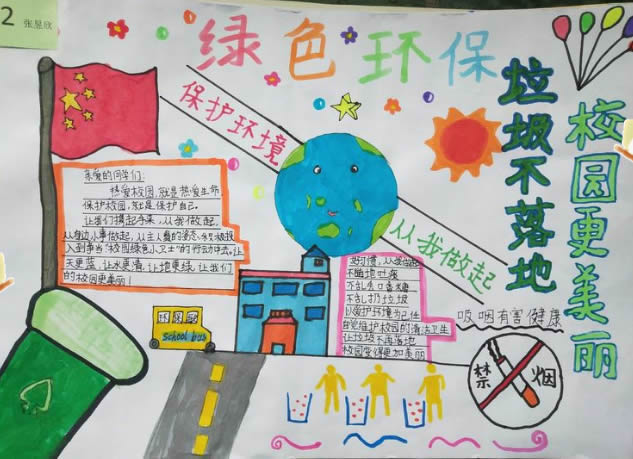 2 张昱欣
绿色环保
垃圾不落地
校园更美丽
保护环境
从我做起
亲爱的同学们:
热爱校园,就是热爱生命
保护校园,就是保护自己。
让我们携起手来,从我做起,
从身边小事做起,以主人翁的姿态,积极投
入到争当"校园绿色小卫士"的行动中去。让
天更蓝,让水更清,让地更绿,让我们
的校园更美丽!
好习惯,从我做起
不随地吐痰
不乱丢口香糖
不乱扔垃圾
以爱护环境为己任
自觉维护校园的清洁卫生
让垃圾不再落地
校园变得更加美丽
吸烟有害健康
禁烟
school bus